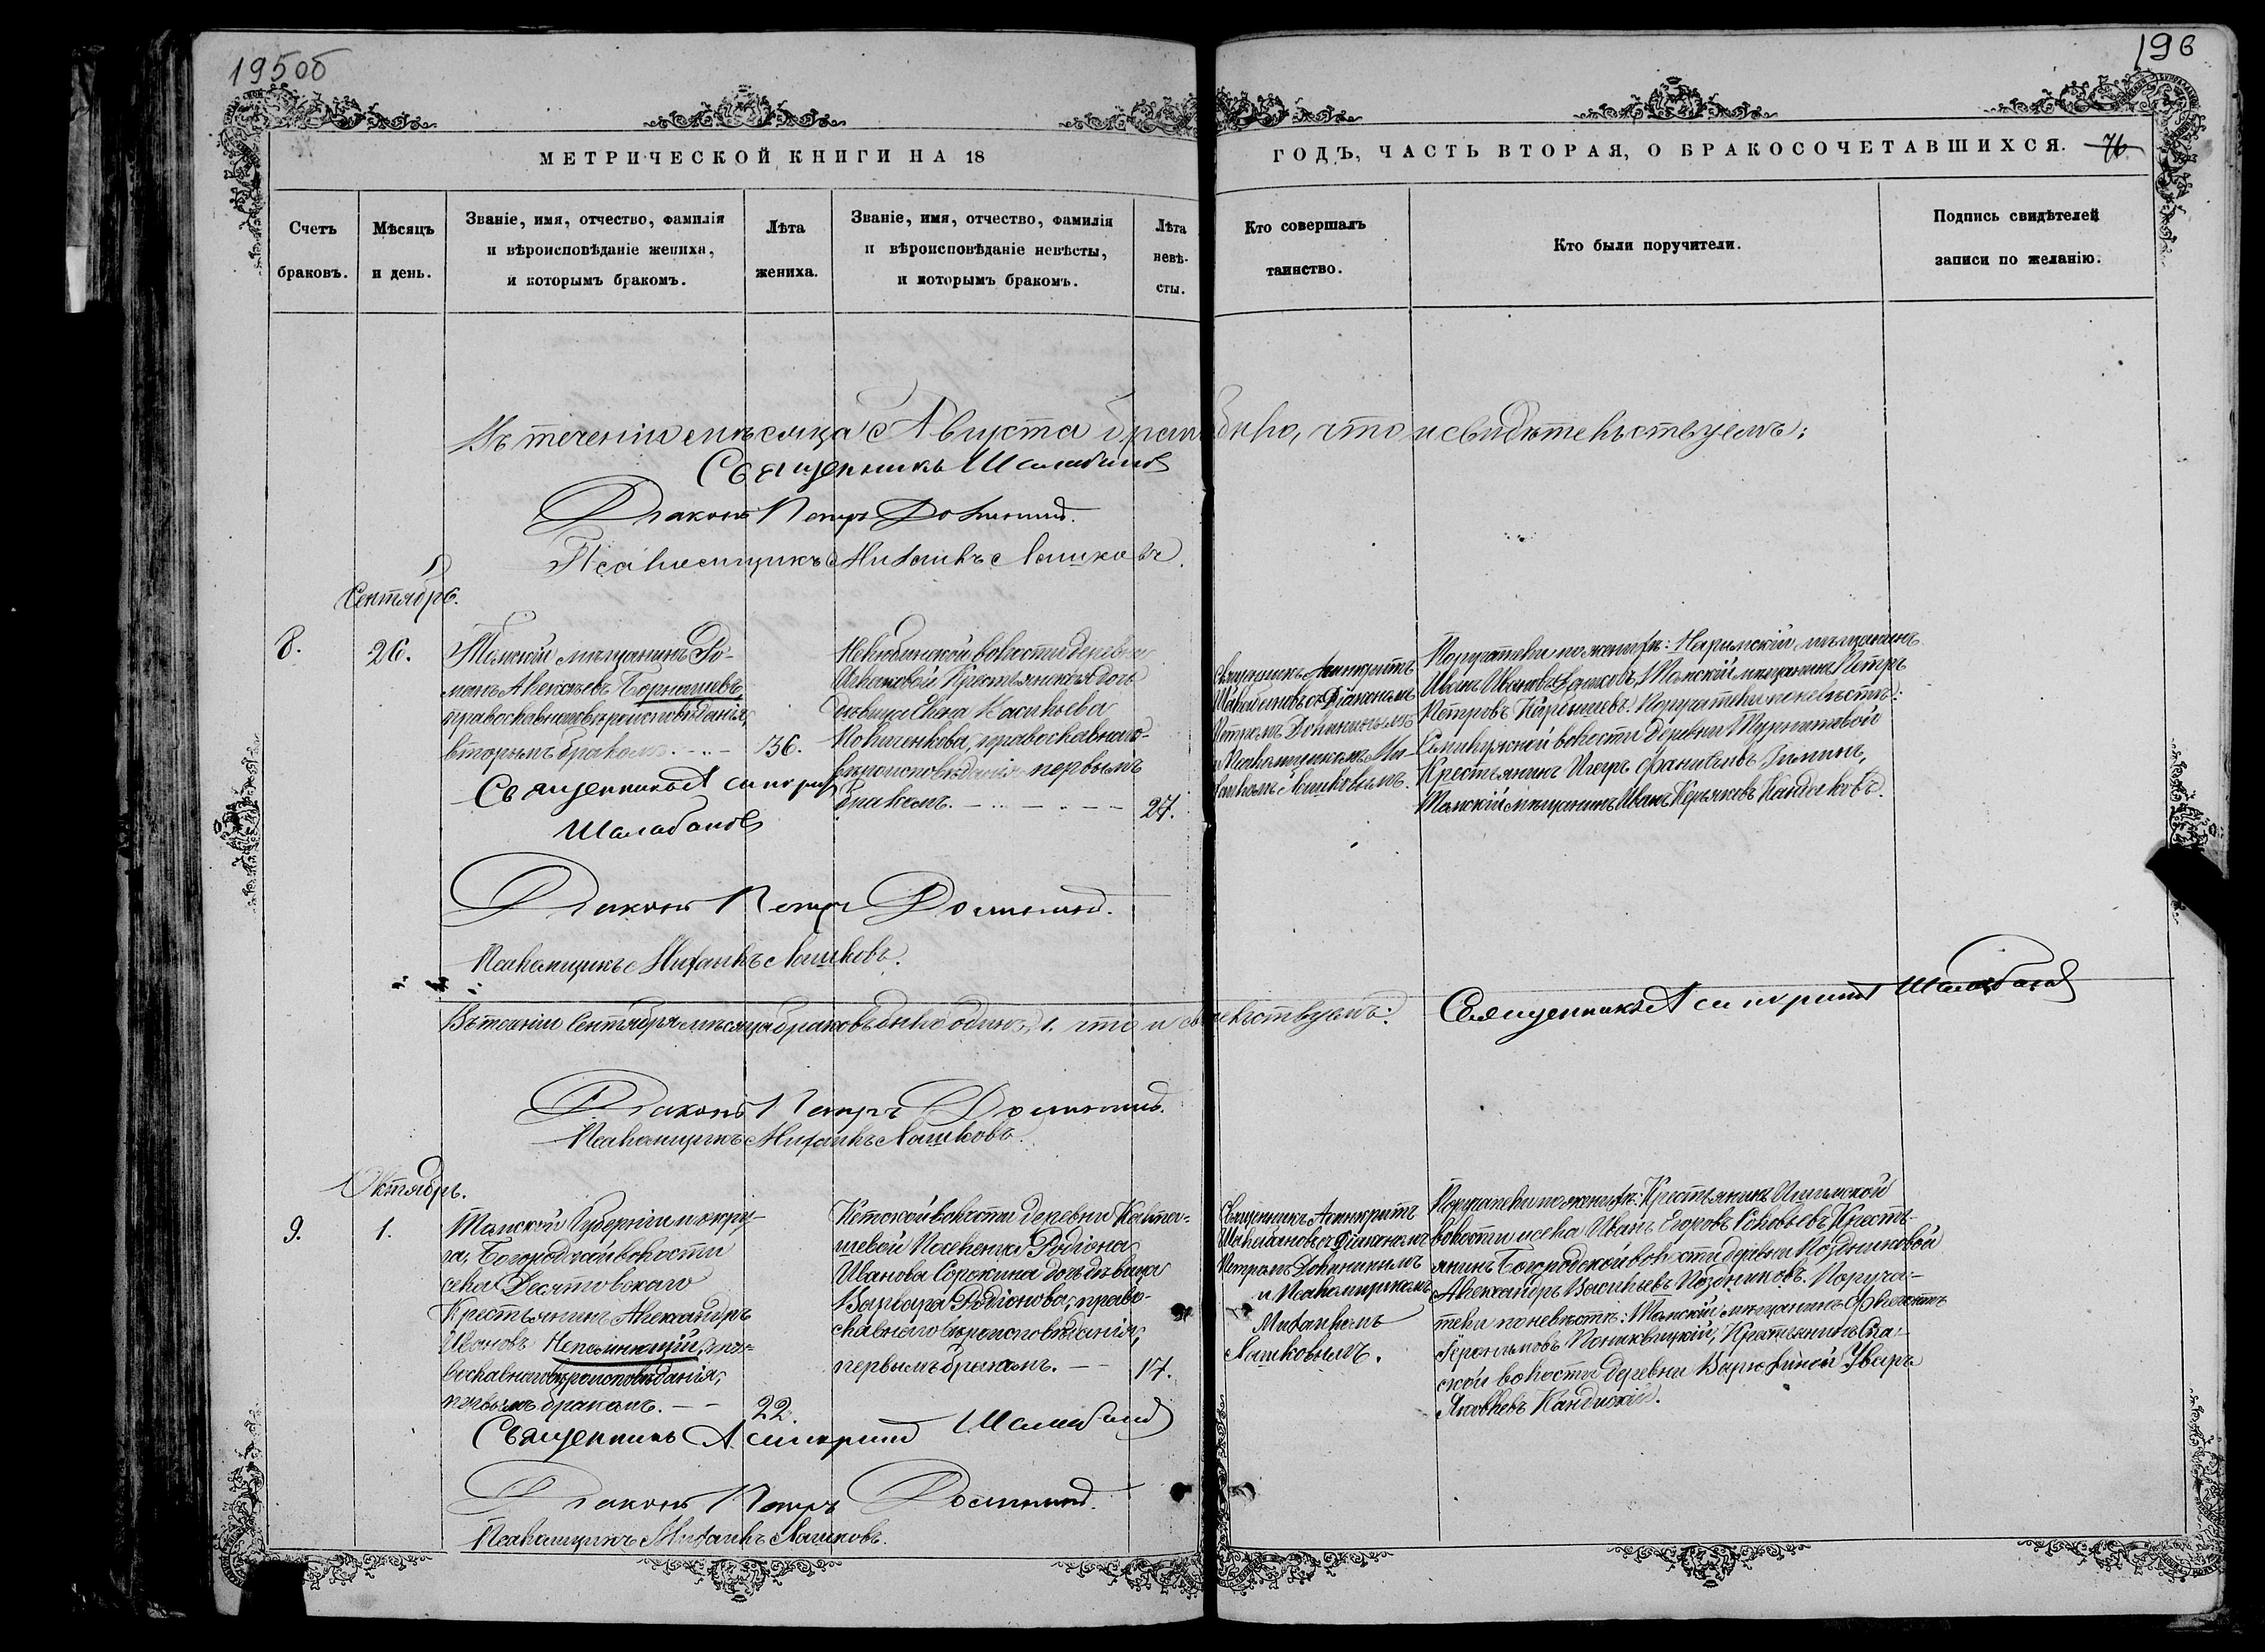 195об
196
МЕТРИЧЕСКОЙ КНИГИ НА 18
ГОДЪ, ЧАСТЬ ВТОРАЯ, О БРАКОСОЧЕТАВШИХСЯ. 76
Счетъ
браковъ.
Мѣсяцъ
и день.
Званіе, имя, отчество, фамилія
и вѣроисповѣданіе жениха,
и которымъ бракомъ.
Лѣта
жениха.
Званіе, имя, отчество, фамилія
и вѣроисповѣданіе невѣсты,
и которымъ бракомъ.
Лѣта
невѣ-
сты.
Кто совершалъ
таинство.
Кто были поручители.
Подпись свидѣтелей
записи по желанію.
Въ теченіи мѣсяца Августа было, что и свидѣтельствуемъ:
Священникъ Шалабановъ
Діаконъ Петръ
Псаломщикъ Михаилъ Лашковъ.
Сентябрь.
8.
26.
Томскій мѣщанинъ Ро-
манъ Алексѣевъ
православнаго вѣроисповѣданія,
вторымъ бракомъ.
36.
волости деревни
Крестьянская дочь
дѣвица Васильева
православнаго
вѣроисповѣданія первымъ
бракомъ.
27.
Священникъ Асинкритъ
Шалабановъ съ Діакономъ
Петромъ
и Псаломщикомъ Ми-
хаиломъ Лашковымъ.
Поручители по женихѣ: Нарымскій мѣщанинъ
Иванъ Ивановъ Томскій мѣщанинъ Петръ
Петровъ Поручители по невѣстѣ:
волости деревни
Крестьянинъ
Томскій мѣщанинъ Иванъ
Священникъ Асинкритъ
Шалабановъ
Діаконъ Петръ
Псаломщикъ Михаилъ Лашковъ.
Въ теченіи Сентября мѣсяца браковъ было одинъ, 1. что и свидѣтельствуемъ: Священникъ Асинкритъ Шалабановъ
Діаконъ Петръ
Псаломщикъ Михаилъ Лашковъ.
Октябрь.
9.
1.
Томской Губерніи и окру-
га, Богородской волости
села
Крестьянинъ Александръ
Ивановъ Непомнющій, пра-
вославнаго вѣроисповѣданія,
первымъ бракомъ.
22.
Кетской волости деревни
Родіона
Иванова Сорокина дочь дѣвица
Варвара Родіонова, право-
славнаго вѣроисповѣданія,
первымъ бракомъ.
17.
Священникъ Асинкритъ
Шалабановъ съ Діакономъ
Петромъ
и Псаломщикомъ
Михаиломъ
Лашковымъ.
Поручители по женихѣ: Крестьянинъ
волости и села Иванъ Егоровъ Соловьевъ, Кресть-
янинъ Богородской волости деревни Поздниковой
Александръ Васильевъ Поздниковъ. Поручи-
тели по невѣстѣ: Томскій мѣщанинъ
Крестьянинъ Спас-
ской волости деревни Варюхиной Уваръ
Яковлевъ
Священникъ Асинкритъ Шалабановъ
Діаконъ Петръ
Псаломщикъ Михаилъ Лашковъ.